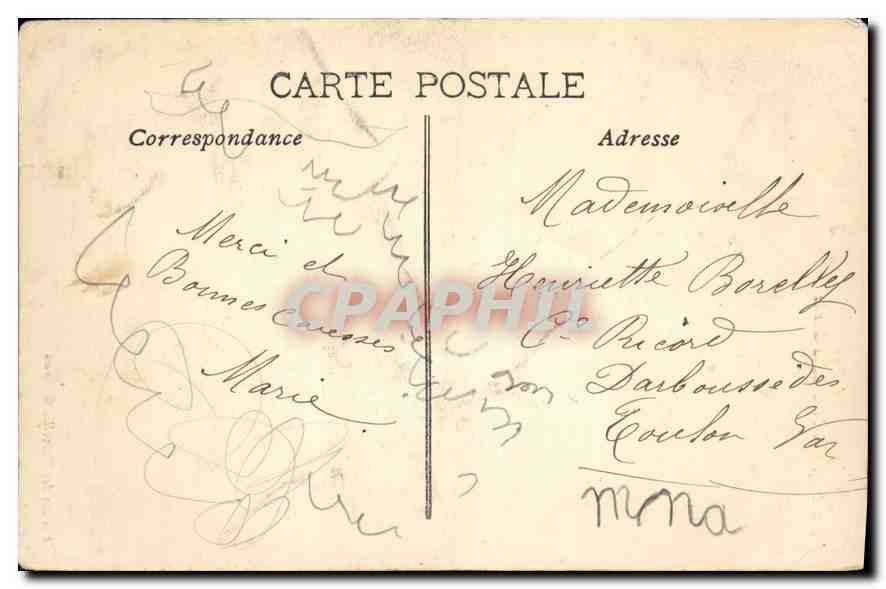 CARTE POSTALE
Correspondance
Merci et
Bonnes Caresses
Marie
Adresse
Mademoiselle
Henriette Borelly
Cᵉ Ricord
Darboussèdes
Toulon Var
mna
CPAPHIL